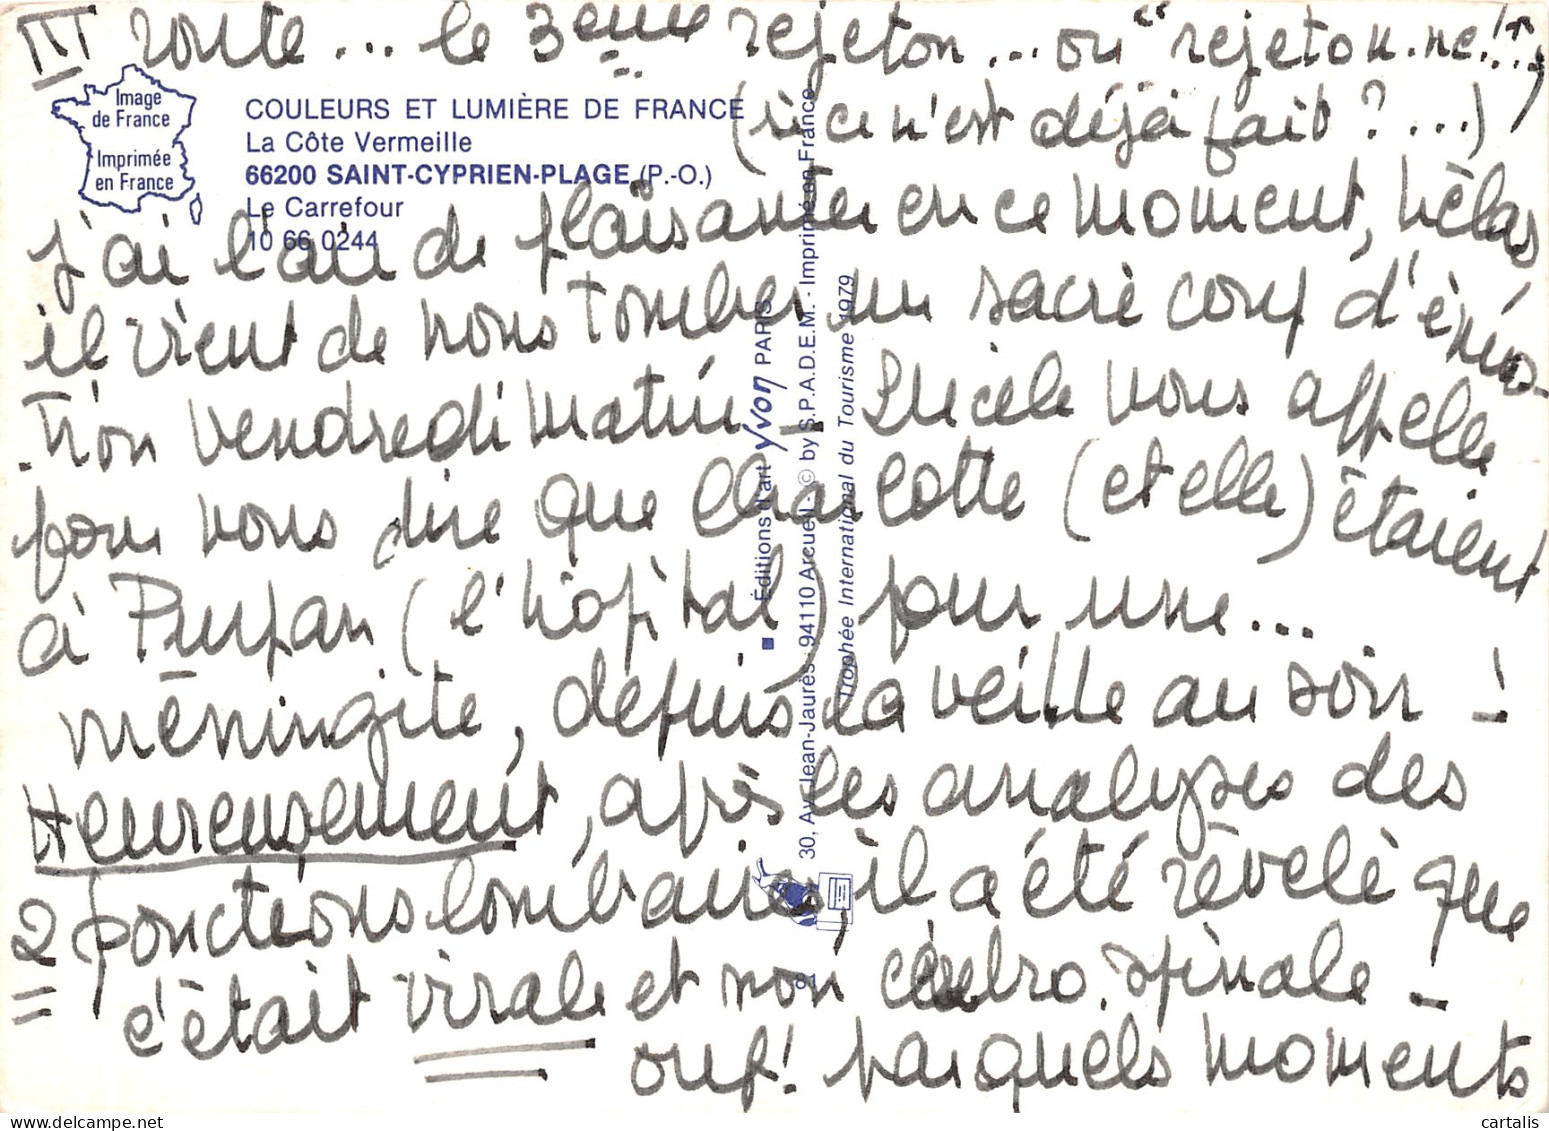 III route... le 3ème rejeton... ou "rejeton.ne!"
(si ce n'est déjà fait ?...)
Image
de France
Imprimée
en France
COULEURS ET LUMIÈRE DE FRANCE
La Côte Vermeille
66200 SAINT-CYPRIEN-PLAGE (P.-O.)
Le Carrefour
10 66 0244
j'ai l'air de plaisanter en ce moment, hèlas
il vient de nous tomber un sacré coup d'émo-
-tion vendredi matin - vous appelle
pour vous dire que Charlotte (et elle) étaient
à Purpan (l'hôpital) pour une...
méningite, depuis la veille au soir !
Heureusement, après les analyses des
2 ponctions lombaires, il a été révélé que
c'était virale et non cérébro.spinale -
ouf! par quels moments
■ Éditions d'art Yvon PARIS
30, Av. Jean-Jaurès - 94110 Arcueil - © by S.P.A.D.E.M. - Imprimé en France
Trophée International du Tourisme 1979
cartalis.com